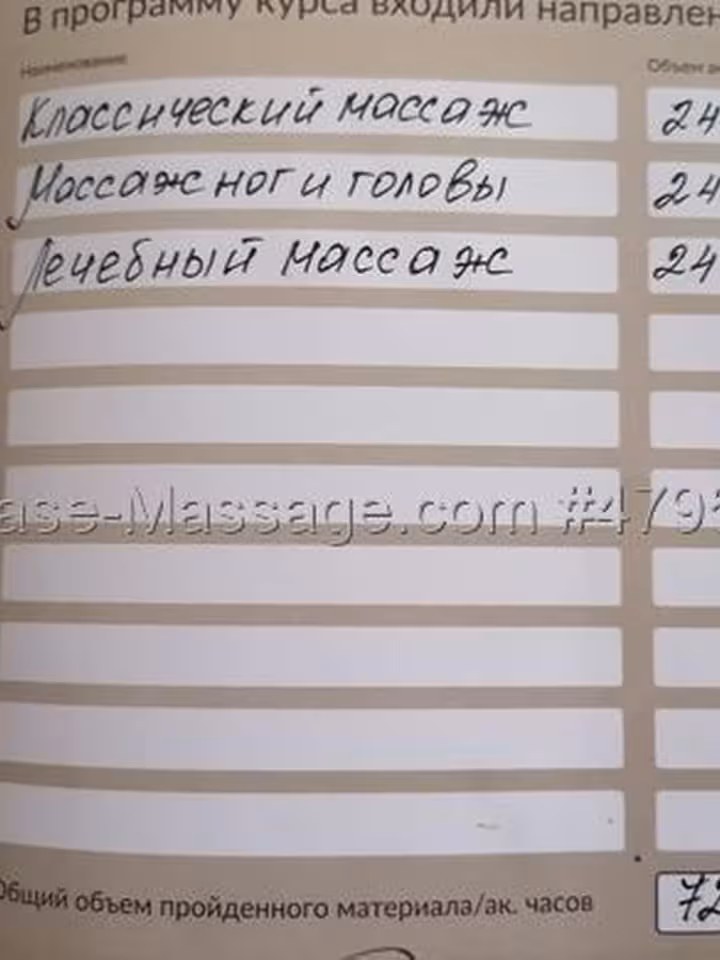 В программу курса входили направлен
Наименование Объем ак
Классический массаж 24
Массаж ног и головы 24
Лечебный массаж 24
ase-Massage.com #479
Общий объем пройденного материала/ак. часов 72